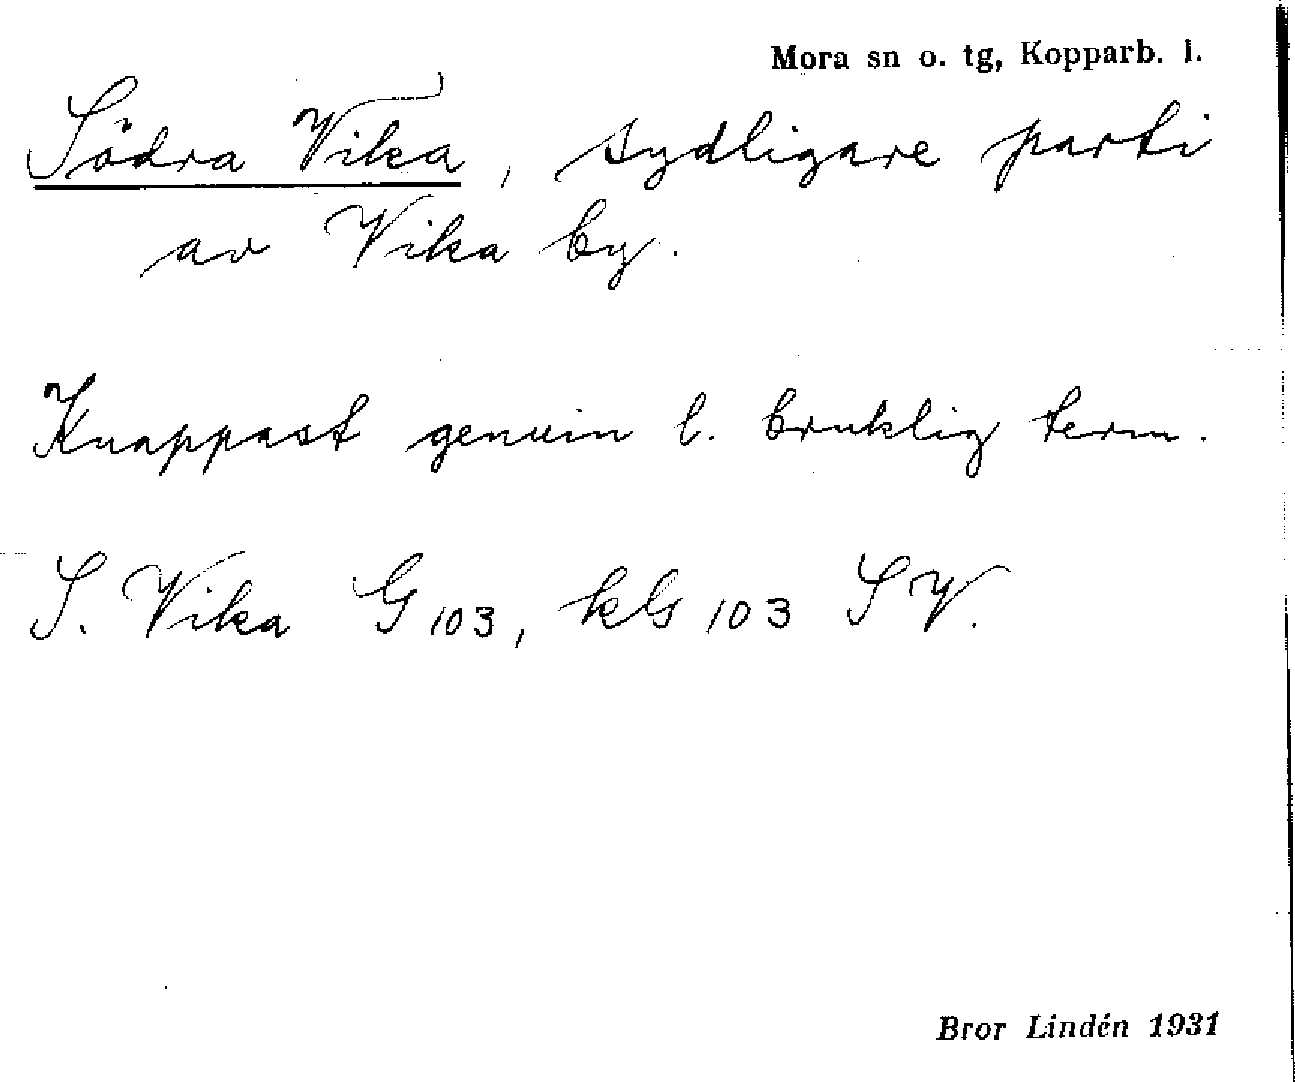 Mora sn o. tg, Kopparb. l.
Södra Vika, sydligare parti
av Vika by.
Knappast genuin l. bruklig term.
S. Vika G 103, kls 103 SV.
Bror Lindén 1931